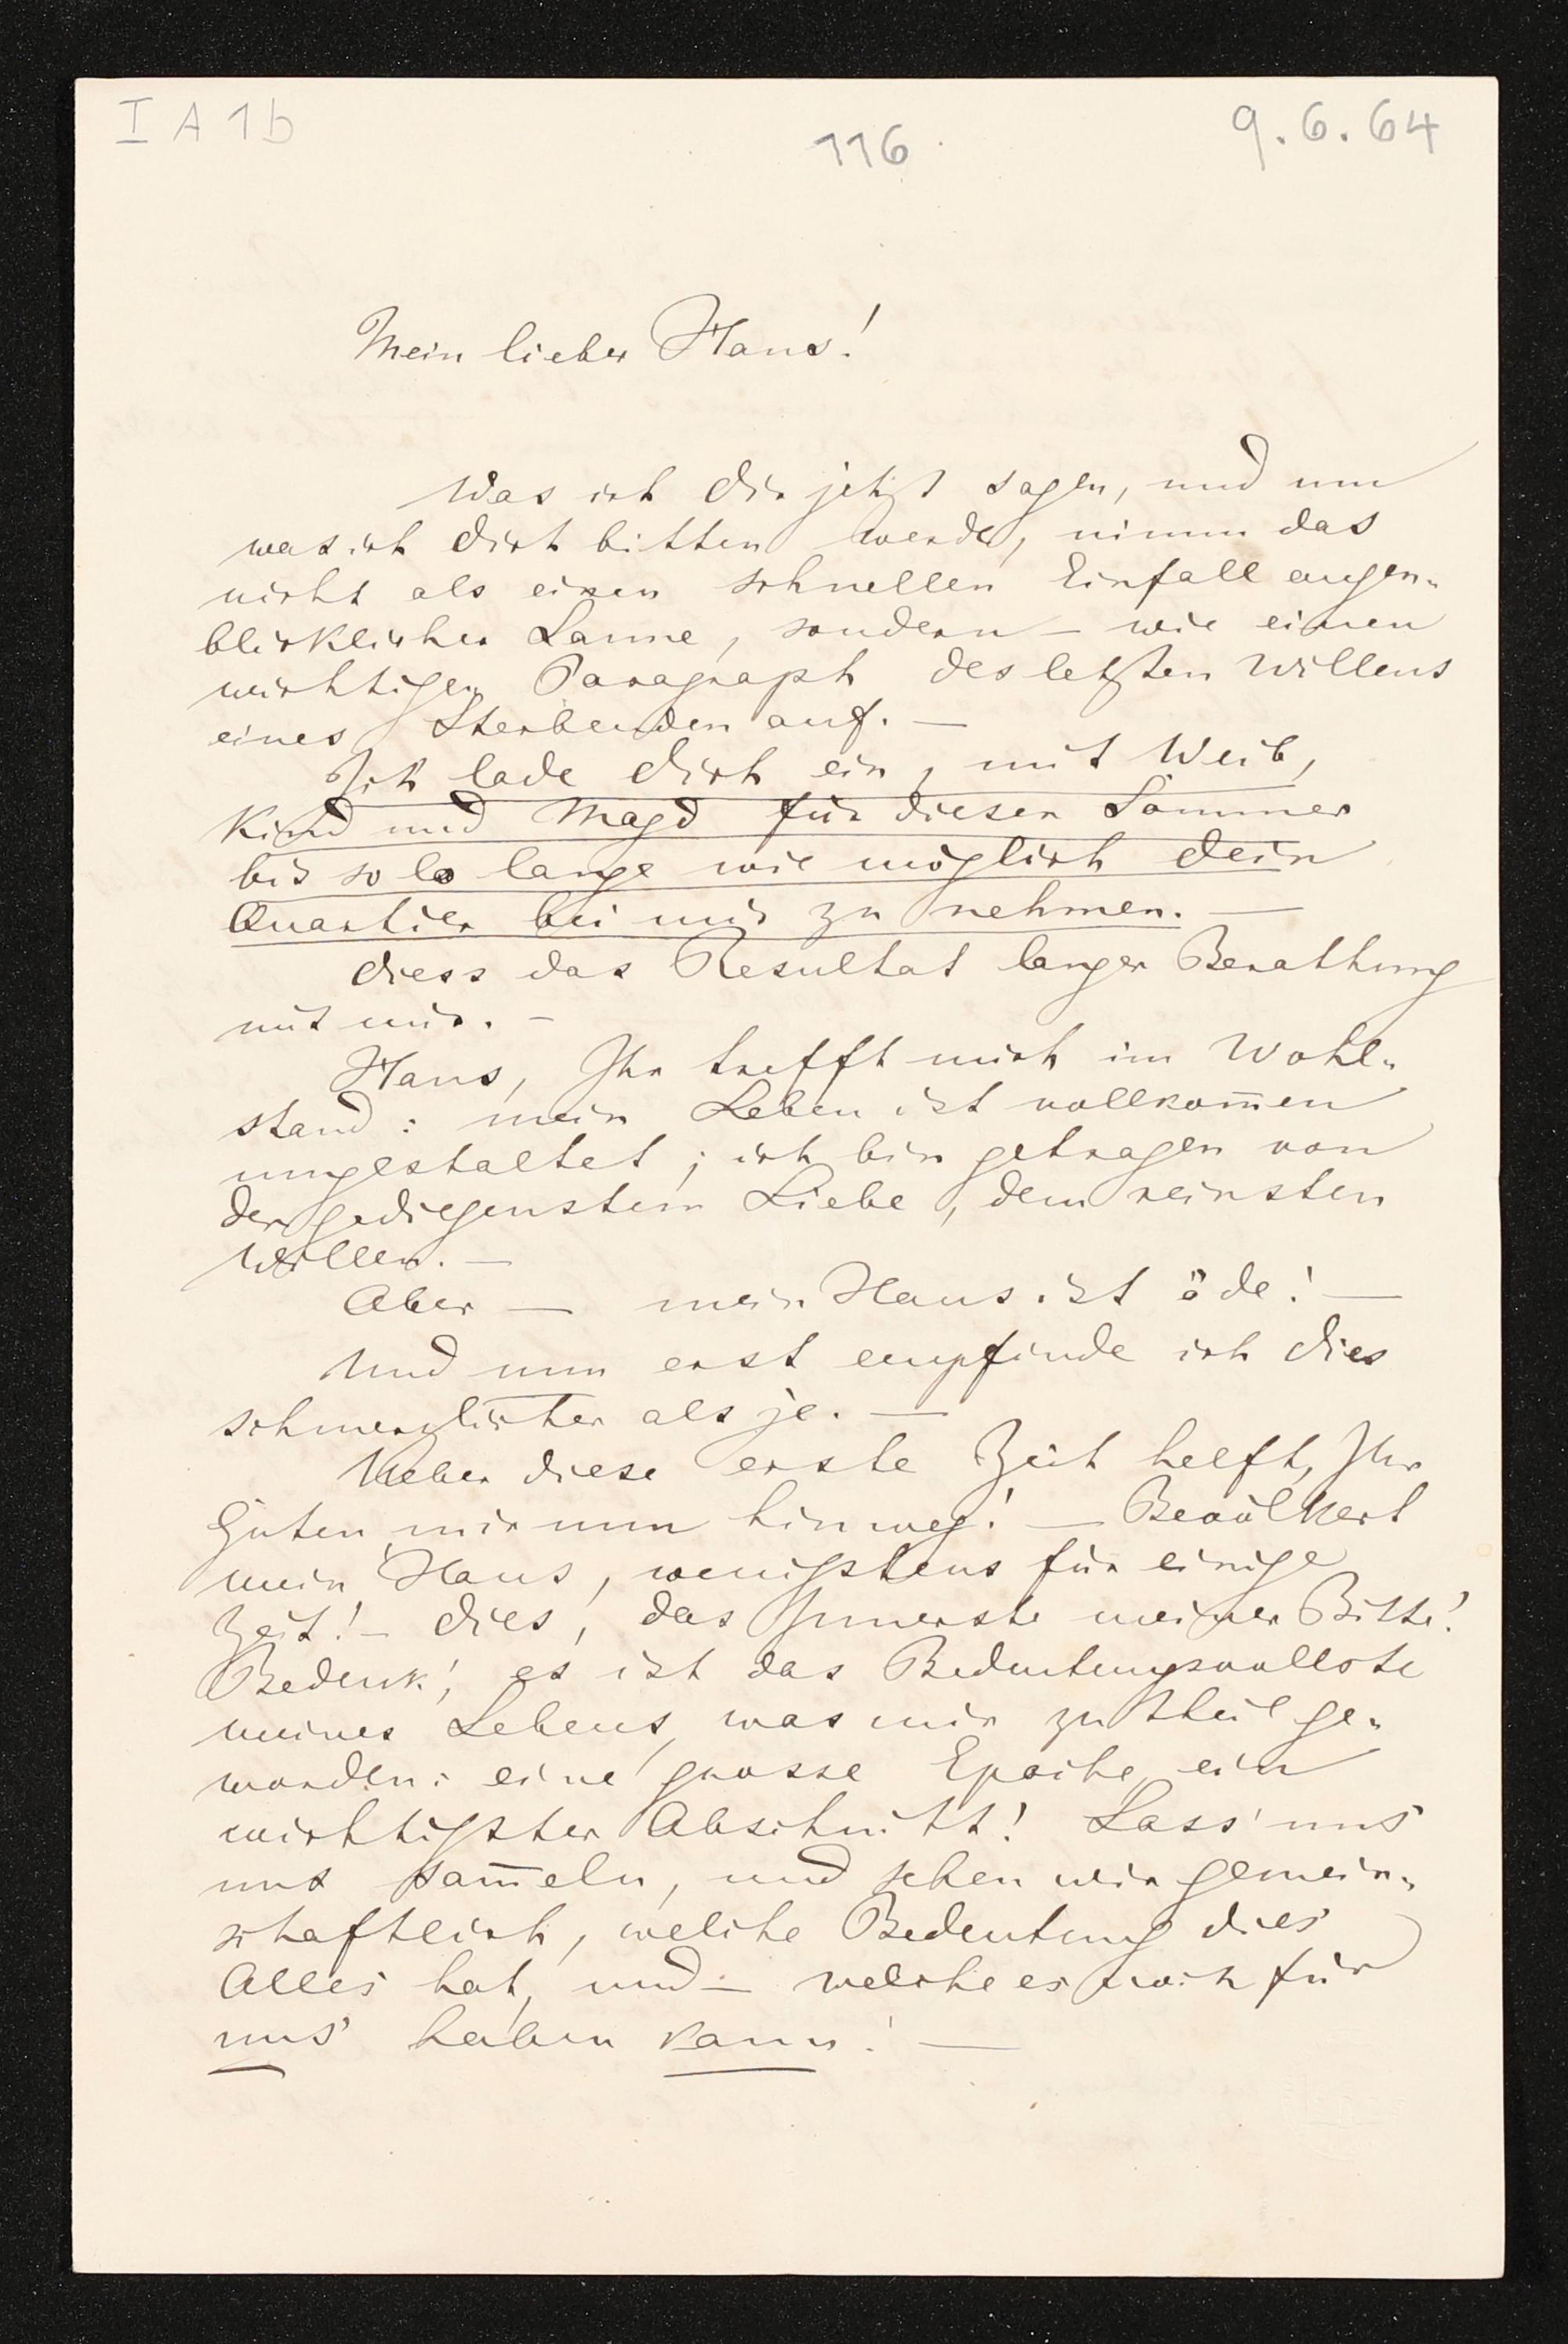 I A 1b
116
9.6.64
Mein lieber Hans!
Was ich Dir jetzt sagen, und um
was ich Dich bitten werde, nimm das
nicht als einen schnellen Einfall augen-
blicklicher Laune, sondern – wie einen
wichtigen Paragraph des letzten Willens
eines Sterbenden auf. —
Ich lade Dich ein, mit Weib,
Kind und Magd für diesen Sommer
bis so la lange wie möglich Dein
Quartier bei mir zu nehmen. —
Diess das Resultat langer Berathung
mit mir. –
Hans, Ihr trefft mich im Wohl-
stand: mein Leben ist vollkom̅en
umgestaltet; ich bin getragen von
der gediegensten Liebe, dem reinsten
Willen. —
Aber — mein Haus ist öde! —
Und nun erst empfinde ich dies
schmerzlicher als je. —
Ueber diese erste Zeit helft, Ihr
Guten, mir nun hinweg! — Bevölkert
mein Haus, wenigstens für einige
Zeit! – Dies, das Innerste meiner Bitte!
Bedenk', es ist das Bedeutungsvollste
meines Lebens, was mir zu Theil ge-
worden: eine grosse Epoche, ein
wichtigster Abschnitt! Lass' uns
uns sam̅eln, und sehen wir gemein-
schaftlich, welche Bedeutung dies
Alles hat, und – welche es noch für
uns haben kann! —